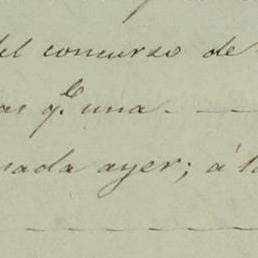 del concurso de
as q.e una. —
nada ayer; á l